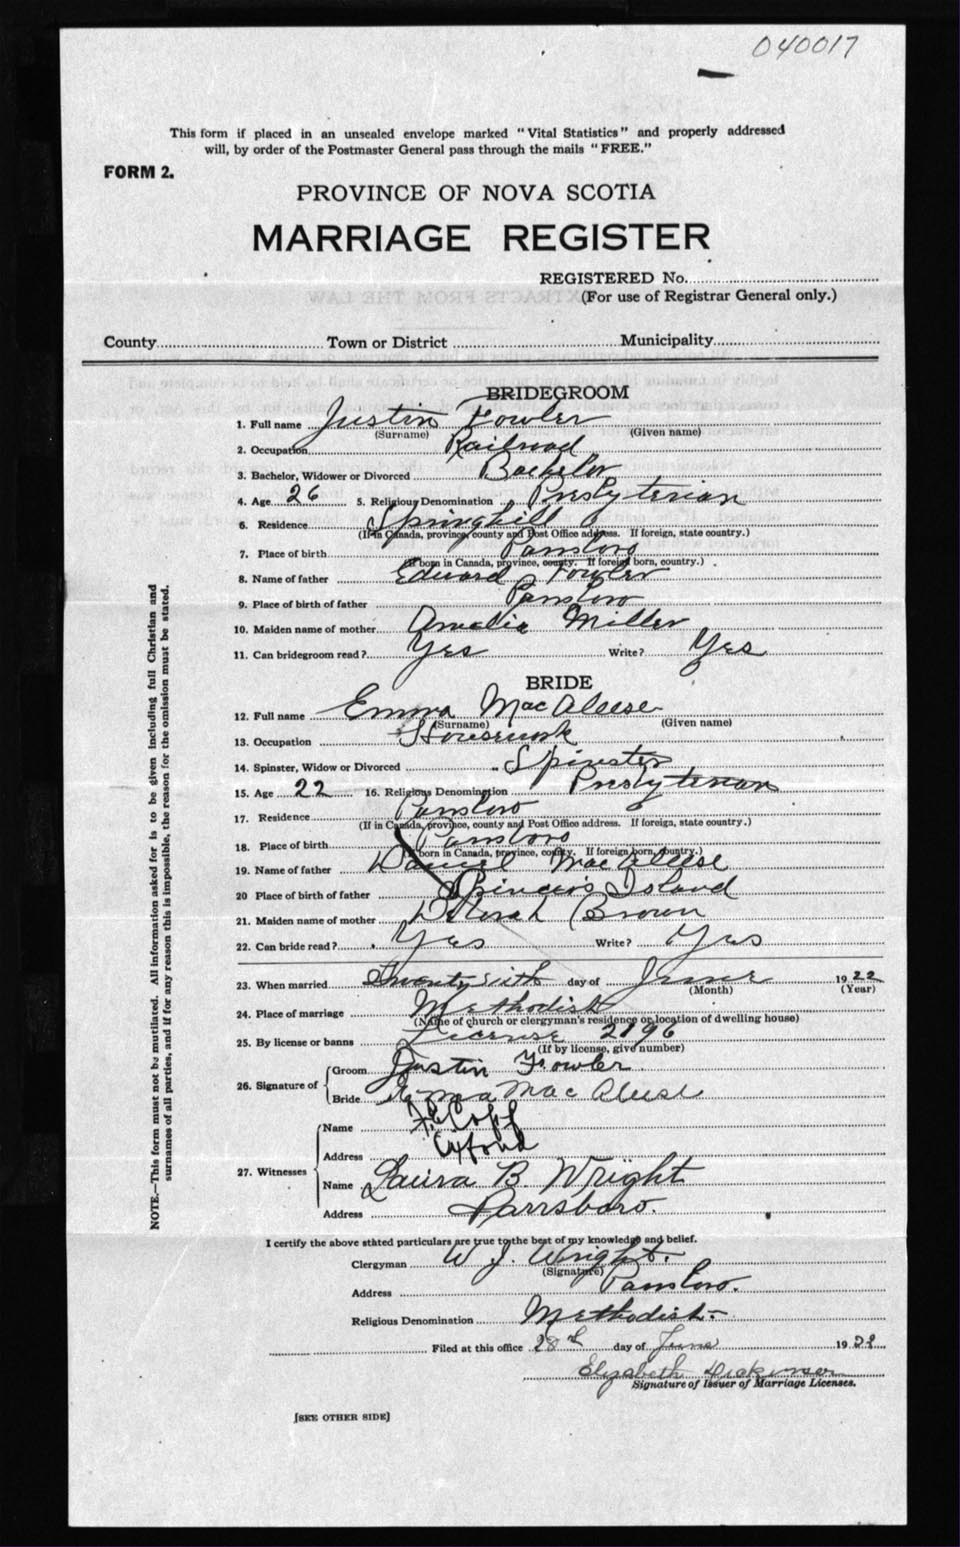 040017
This form if placed in an unsealed envelope marked "Vital Statistics" and properly addressed
will, by order of the Postmaster General pass through the mails "FREE."
FORM 2.
PROVINCE OF NOVA SCOTIA
MARRIAGE REGISTER
REGISTERED No.
(For use of Registrar General only.)
County Town or District Municipality
BRIDEGROOM
1. Full name Justin Fowler
(Surname) (Given name)
2. Occupation Railroad
3. Bachelor, Widower or Divorced Bachelor
4. Age 26 5. Religious Denomination Presbyterian
6. Residence Springhill
(If in Canada, province, county and Post Office address. If foreign, state country.)
7. Place of birth Parrsboro
(If born in Canada, province, county. If foreign born, country.)
8. Name of father Edward Fowler
9. Place of birth of father Parrsboro
10. Maiden name of mother Amelia Miller
11. Can bridegroom read? Yes Write? Yes
BRIDE
12. Full name Emma MacAleese
(Surname) (Given name)
13. Occupation Housework
14. Spinster, Widow or Divorced Spinster
15. Age 22 16. Religious Denomination Presbyterian
17. Residence Parrsboro
(If in Canada, province, county and Post Office address. If foreign, state country.)
18. Place of birth Parrsboro
(If born in Canada, province, county. If foreign born, country.)
19. Name of father Daniel MacAleese
20 Place of birth of father Island
21. Maiden name of mother Deborah Brown
22. Can bride read? Yes Write? Yes
23. When married Twenty sixth day of June 1922
(Month) (Year)
24. Place of marriage Methodist
(Name of church or clergyman's residence or location of dwelling house)
25. By license or banns License 2196
(If by license, give number)
26. Signature of Groom Justin Fowler
Bride Emma MacAleese
27. Witnesses
Name Copp
Address Oxford
Name Laura B. Wright
Address Parrsboro.
I certify the above stated particulars are true to the best of my knowledge and belief.
Clergyman W. J. Wright.
(Signature)
Address Parrsboro.
Religious Denomination Methodist
Filed at this office 28th day of June 1922
Elizabeth Dickinson
Signature of Issuer of Marriage Licenses.
[SEE OTHER SIDE]
NOTE.—This form must not be mutilated. All information asked for is to be given including full Christian and
surnames of all parties, and if for any reason this is impossible, the reason for the omission must be stated.